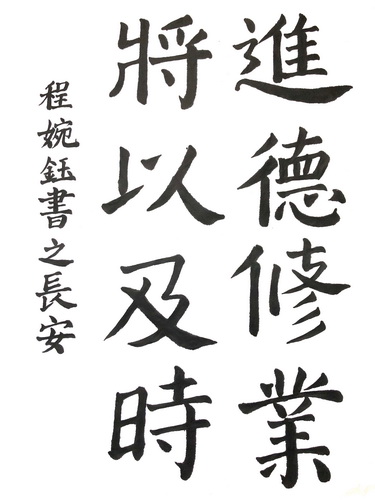 進德修業
將以及時
程婉鈺書之長安